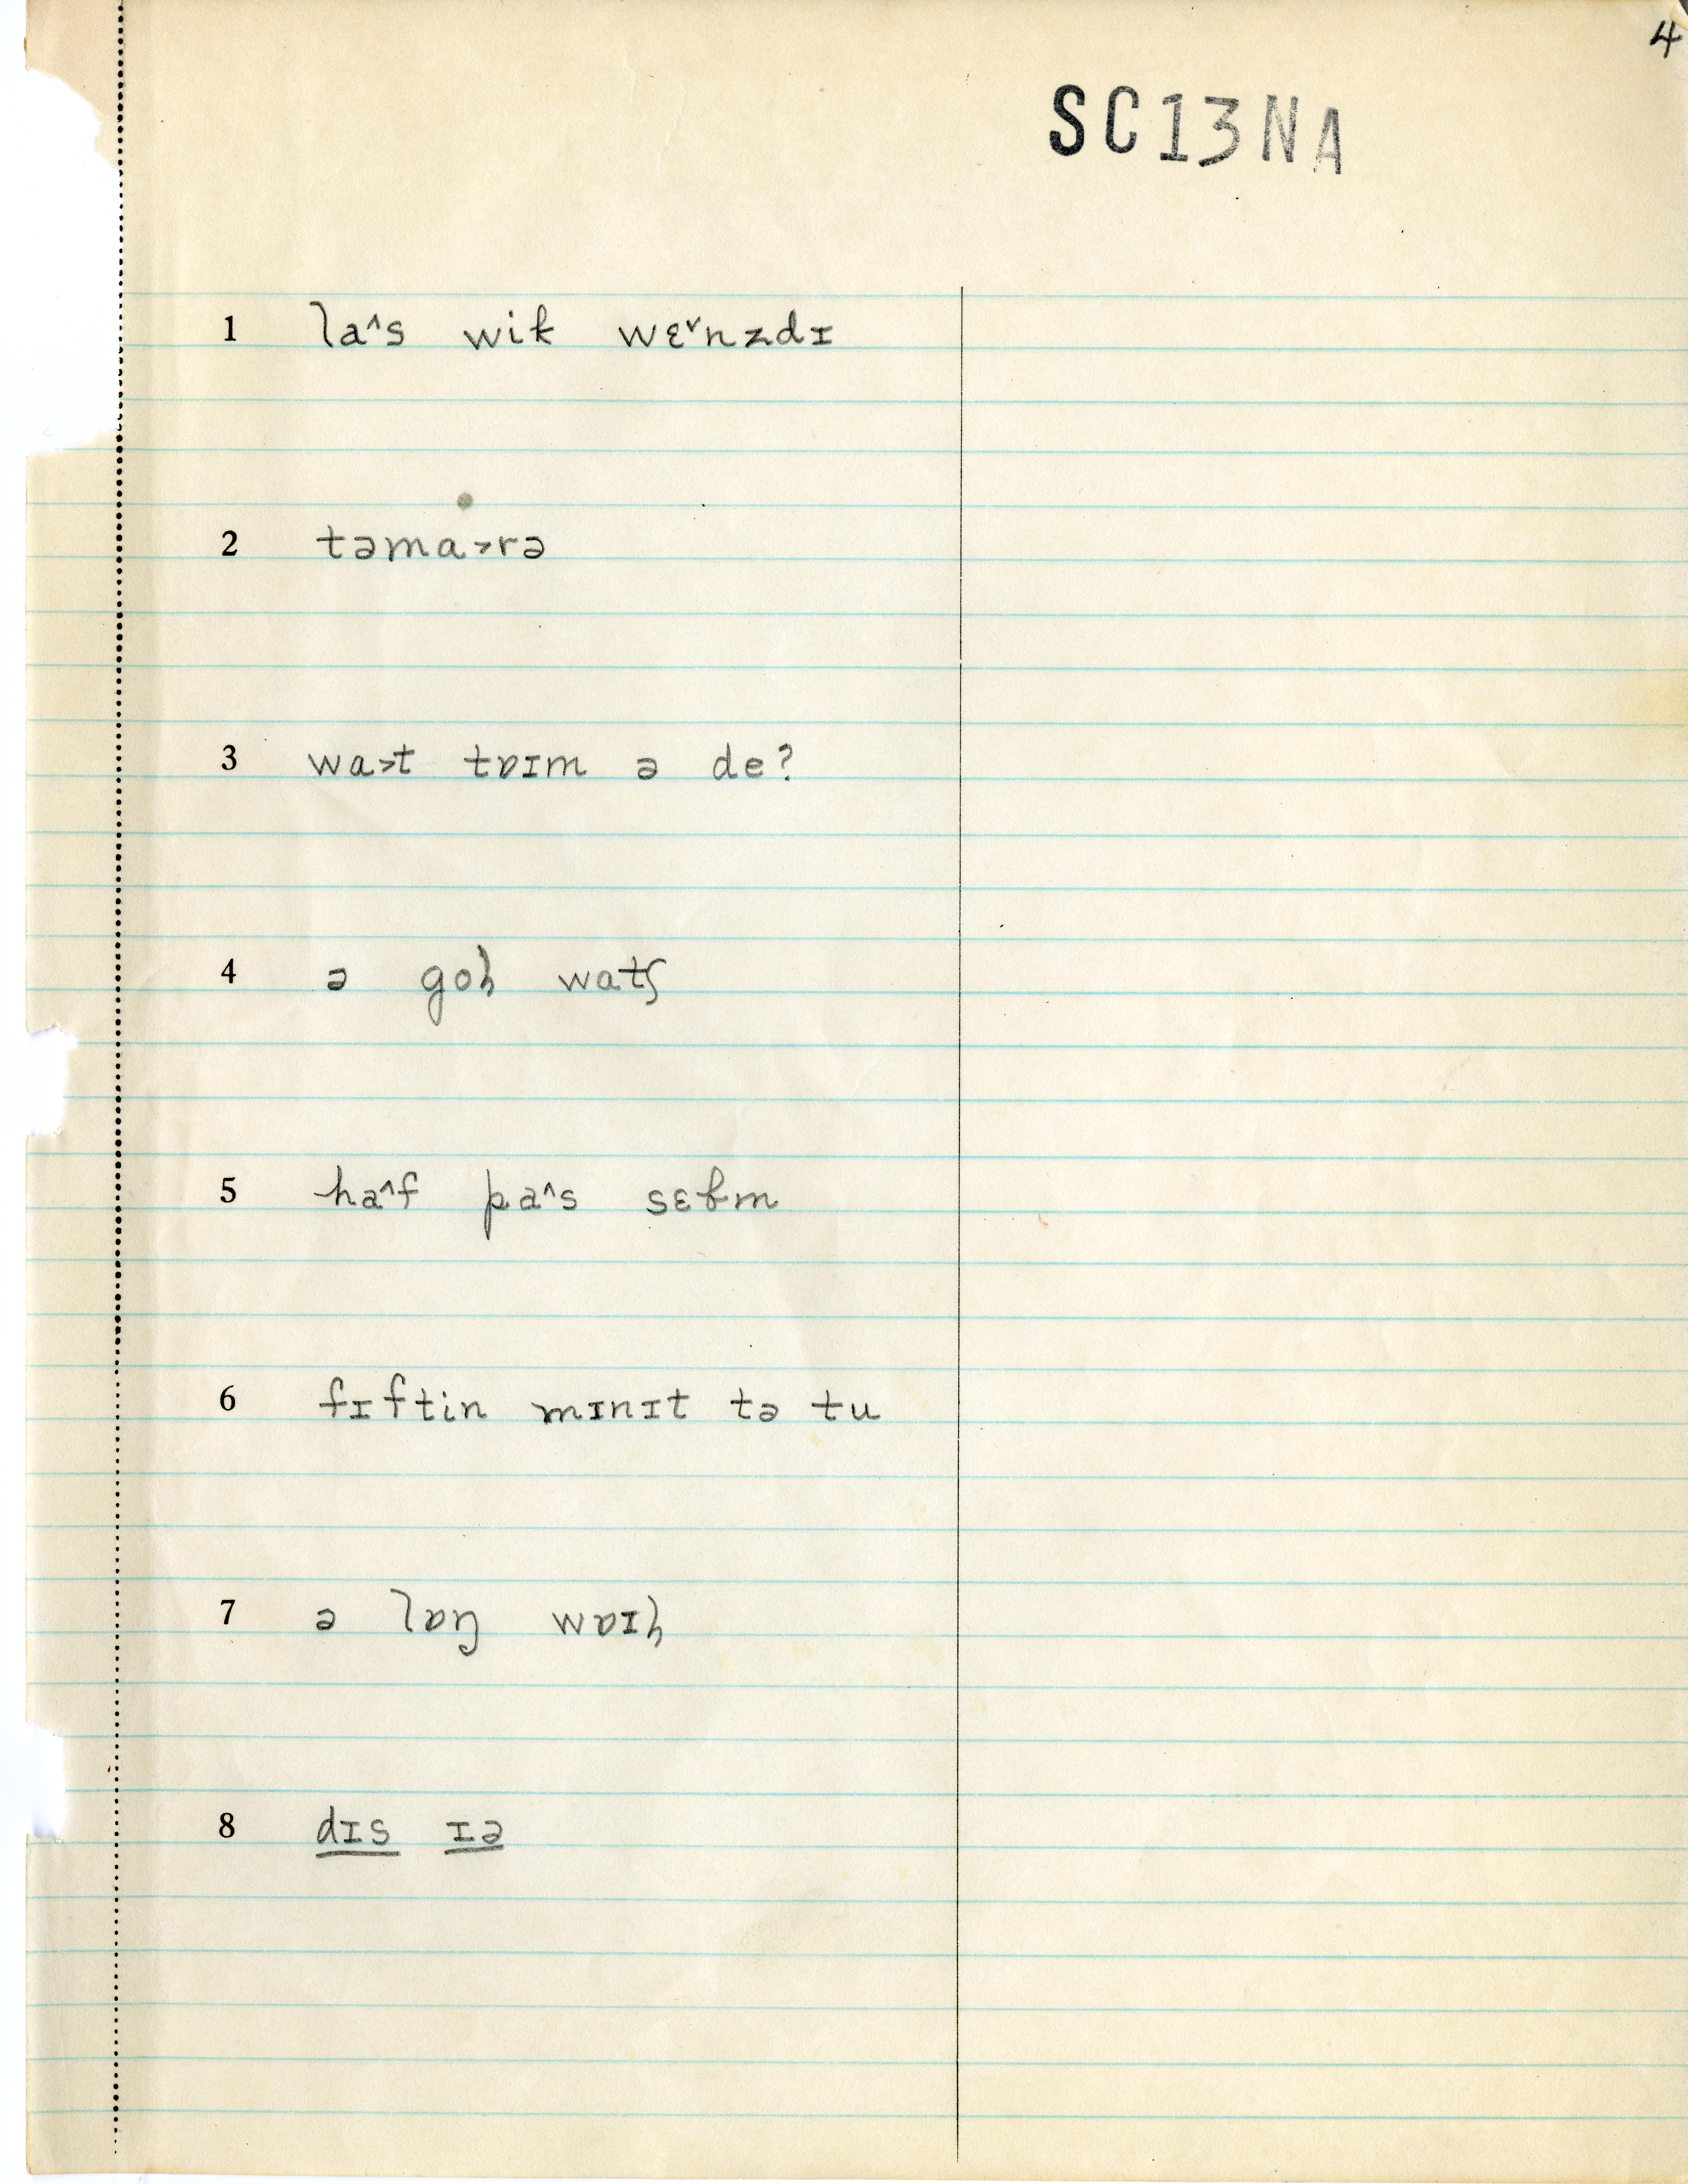 4
SC13NA
1 la˄s wik wɛ˅nzdɪ
2 təma˃rə
3 wa˃t tɒɪm ə de?
4 ə goɦ watʃ
5 ha˄f pa˄s sɛbm
6 fɪftin mɪnɪt tə tu
7 ə lɒŋ wɒɪɦ
8 dɪs ɪə